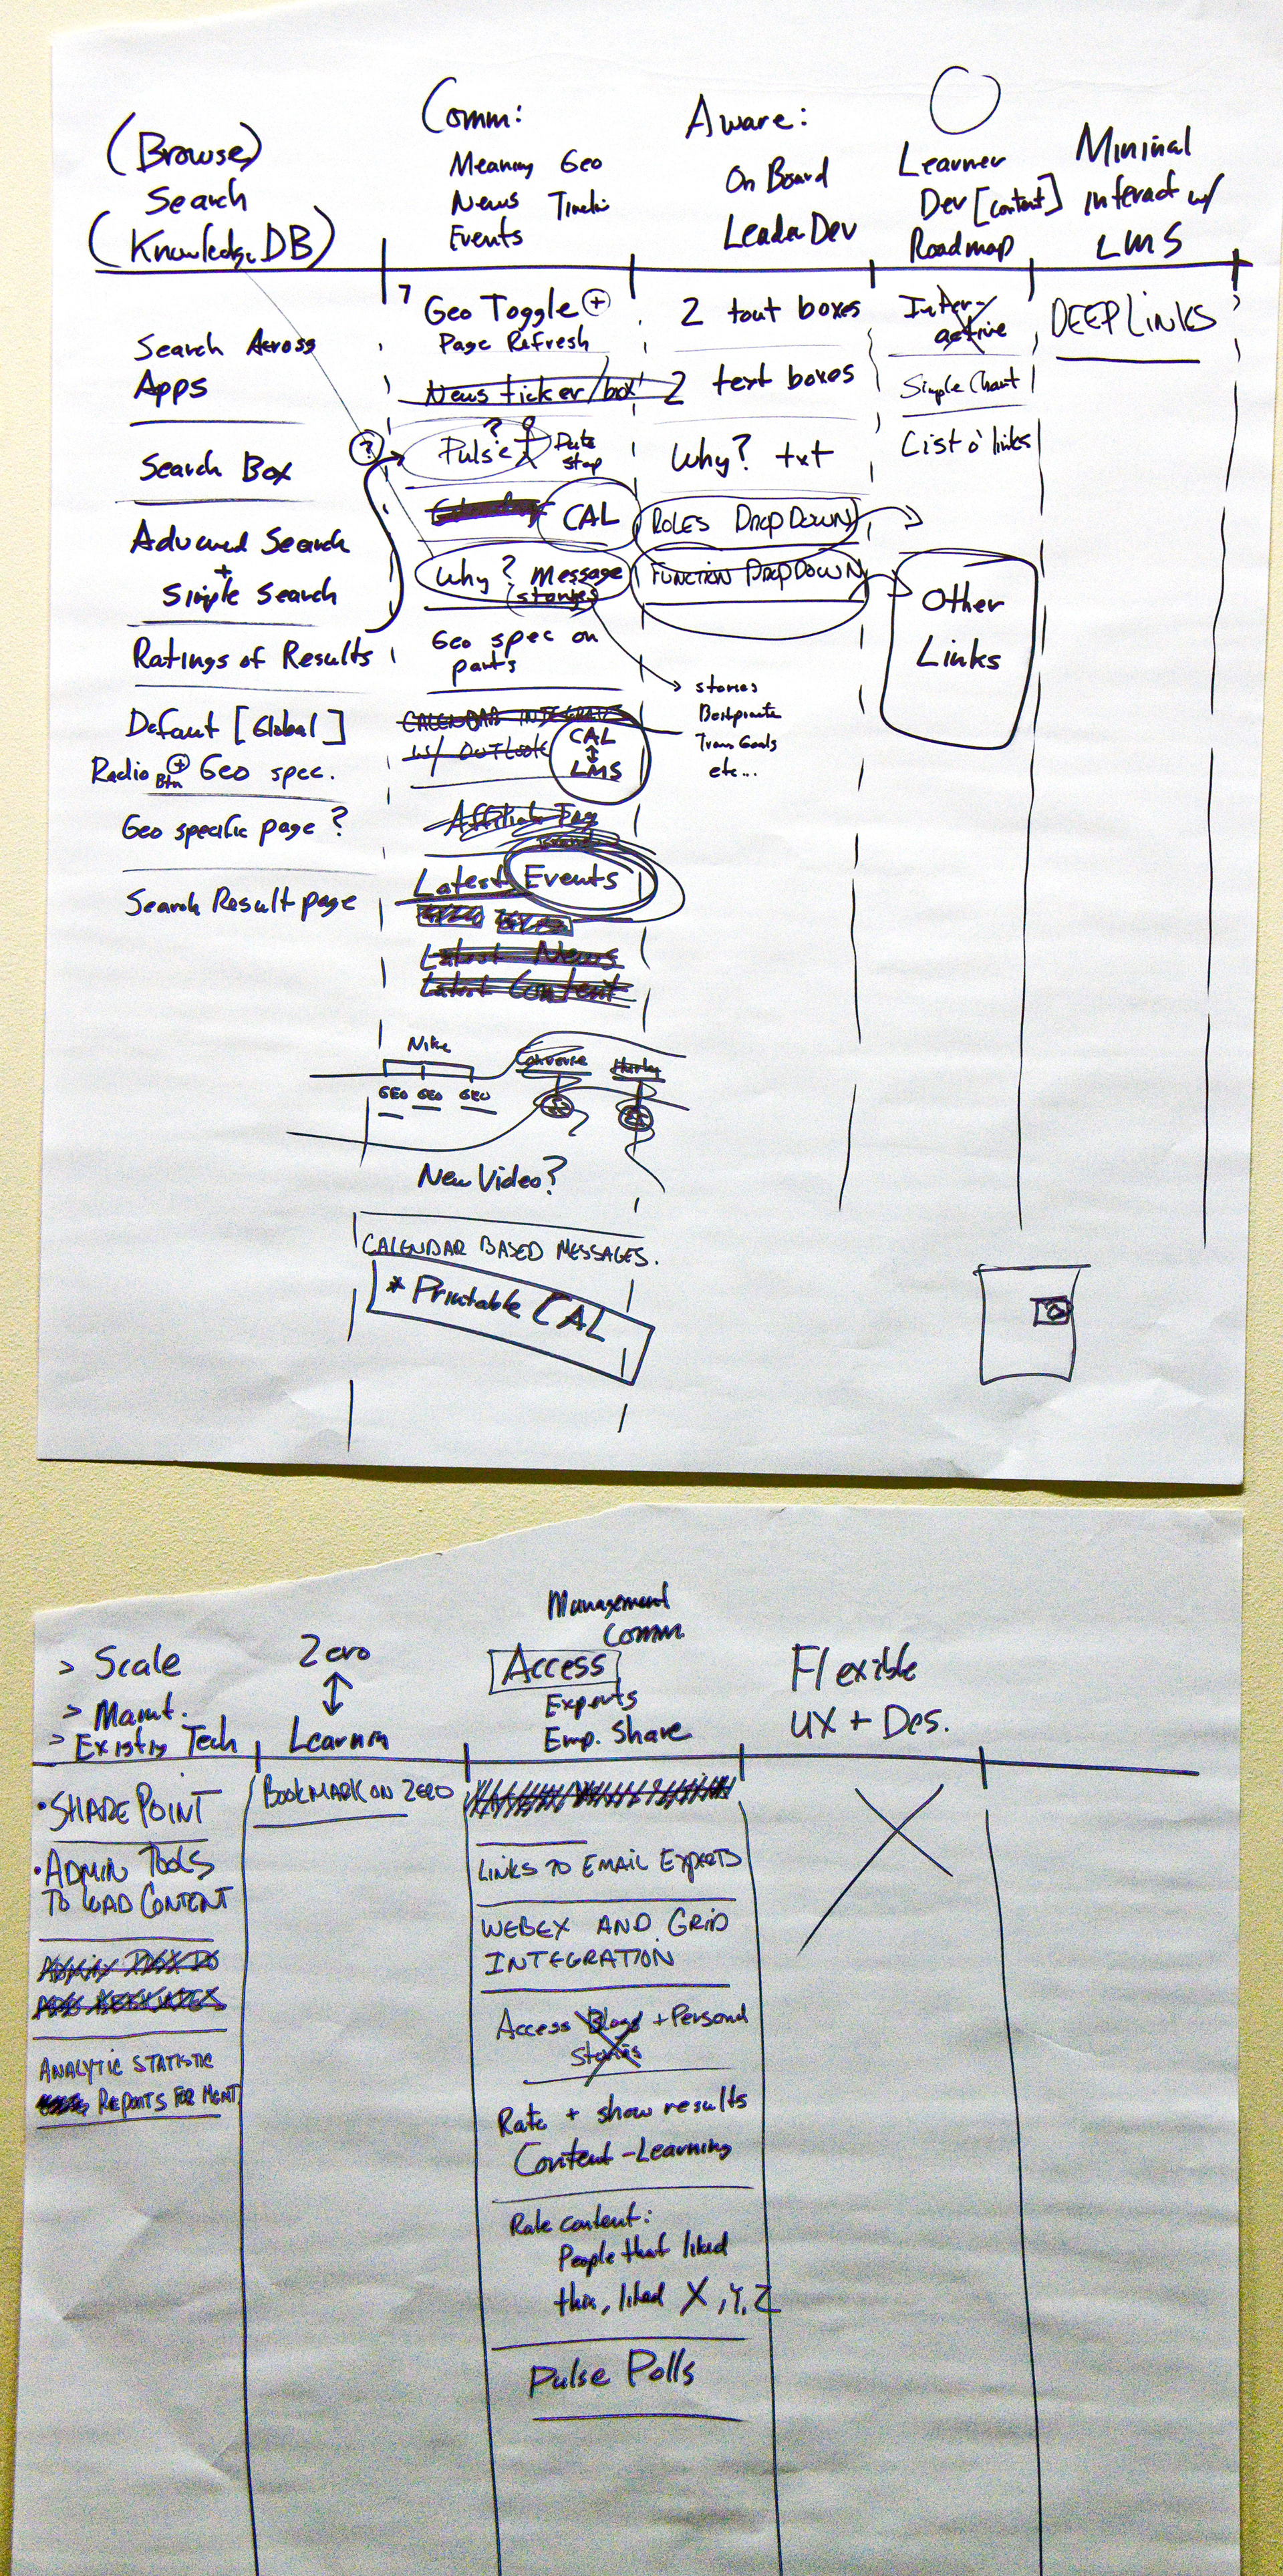 (Browse)
Search
(Knowledge DB)
Comm:
Meaning Geo
News
Events
Aware:
On Board
Leader Dev
Learner
Dev [content]
Roadmap
Mininal
interact w/
LMS
Search Across
Apps
Search Box
Advanced Search
+
Simple Search
Ratings of Results
Default [Global]
Radio Btn + Geo spec.
Geo specific page?
Search Result page
7
Geo Toggle +
Page Refresh
News ticker/box
?
?
Pulse
CAL
Why? Message
stories
Geo spec on
parts
CALENDAR INTEGRAT
w/ OUTLOOK
CAL
LMS
Latest Events
Latest News
Latest Content
Nike
Converse
Hurley
GEO GEO GEO
New Video?
CALENDAR BASED MESSAGES.
* Printable CAL
2 tout boxes
2 text boxes
Why? txt
ROLES DROPDOWN
FUNCTION DROPDOWN
stories
Goals
etc...
Inter-
active
Simple Chart
List o' links
Other
Links
DEEP LINKS
> Scale
> Mamt.
> Existig Tech
Zero
Learnin
Management
Comm.
Access
Experts
Emp. Share
Flexible
UX + Des.
• SHARE POINT
• ADMIN TOOLS
TO LOAD CONTENT
ANALYTIC STATISTIC
REPORTS FOR MGMT.
BOOKMARK ON ZERO
LINKS TO EMAIL EXPERTS
WEBEX AND GRID
INTEGRATION
Access Blogs + Personal
Stories
Rate + show results
Content - Learning
Rate content:
People that liked
this, liked X, Y, Z
Pulse Polls